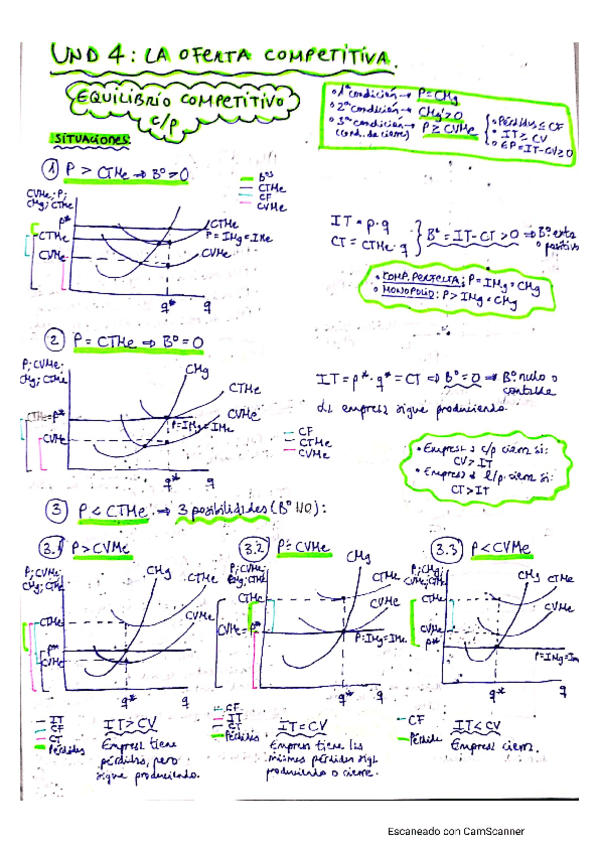 UND 4: LA OFERTA COMPETITIVA.
EQUILIBRIO COMPETITIVO
c/p
1ª condición → P=CMg
2ª condición → CMg'>0
3ª condición → P≥CVMe
(cond. de cierre)
Pérdidas ≤ CF
IT ≥ CV
EP=IT-CV≥0
SITUACIONES:
1 P > CTMe ⇒ Bº>0
Bºs
CTMe
CF
CVMe
CVMe; P;
CMg; CTMe
P*
CTMe
CVMe
CTMe
P=IMg=IMe
CVMe
q* q
IT = P·q
CT = CTMe·q
Bº=IT-CT>0 ⇒ Bº extra
o positivo
COMP. PERFECTA: P=IMg=CMg
MONOPOLIO: P>IMg=CMg
2 P = CTMe ⇒ Bº=0
P; CVMe;
CMg; CTMe
CTMe=P*
CVMe
CMg
CTMe
CVMe
P=IMg=IMe
q* q
CF
CTMe
CVMe
IT=P*·q*=CT ⇒ Bº=0 ⇒ Bº nulo o
contable
La empresa sigue produciendo.
Empresa a c/p cierra si:
CV>IT
Empresa a l/p cierra si:
CT>IT
3 P < CTMe ⇒ 3 posibilidades (Bº NO):
3.1 P>CVMe
P; CVMe;
CMg; CTMe
CTMe
P*
CVMe
CMg
CTMe
CVMe
q* q
IT
CF
CT
Pérdidas
IT>CV
Empresa tiene
pérdidas, pero
sigue produciendo.
3.2 P=CVMe
P; CVMe;
CMg; CTMe
CTMe
CVMe=P*
CMg
CTMe
CVMe
P=IMg=IMe
q* q
CF
IT
CT
Pérdidas
IT=CV
Empresa tiene las
mismas pérdidas siga
produciendo o cierre.
3.3 P<CVMe
P; CMg;
CVMe; CTMe
CTMe
CVMe
P*
CMg CTMe
CVMe
P=IMg=IMe
q* q
CF
Pérdida
IT<CV
Empresa cierra.
Escaneado con CamScanner